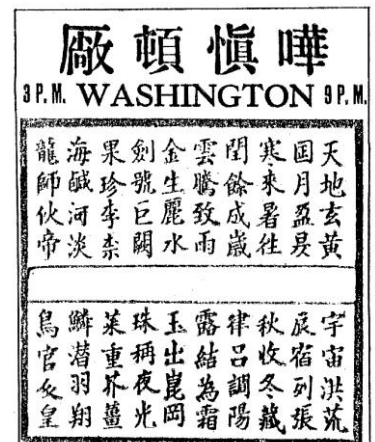 嘩愼頓廠
3 P.M. WASHINGTON 9 P.M.
天地玄黃
囯月盈昃
寒來暑往
閏餘成歲
雲騰致雨
金生麗水
劍號巨闕
果珍李柰
海鹹河淡
龍師伙帝
宇宙洪荒
辰宿列張
秋收冬藏
律呂調陽
露結為霜
玉出崑岡
珠稱夜光
菜重芥薑
鱗潛羽翔
鳥官皇